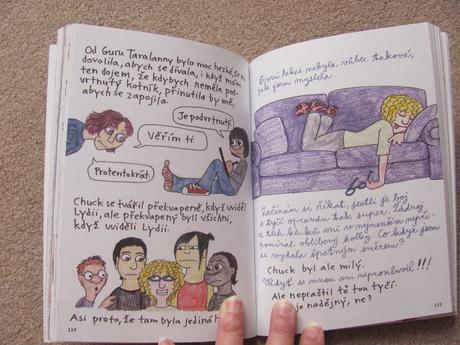 Od Guru Taralanny bylo moc hezké, že mi
dovolila, abych se dívala, i když mám
ten dojem, že kdybych neměla pod-
vrtnutý kotník, přinutila by mě,
abych se zapojila.
Je podvrtnutý.
Věřím ti
Protentokrát.
Chuck se tvářil překvapeně, když uviděl
Lydii, ale překvapený byli všichni,
když uviděli Lydii.
Asi proto, že tam byla jediná
114
První lekce nebyla vůbec taková,
jak jsem myslela.
Začínám si říkat, jestli je boj
s tyčí opravdu tak super. Žádnej
z těch kluků ani v nejmenším nepři-
pomínal oblíbený holky. Co když jsem
se vydala špatným směrem?
Chuck byl ale milý.
Vždyť se mnou ani nepromluvil!!!
Ale nepraštil tě tou tyčí.
je nadějný, ne?
115